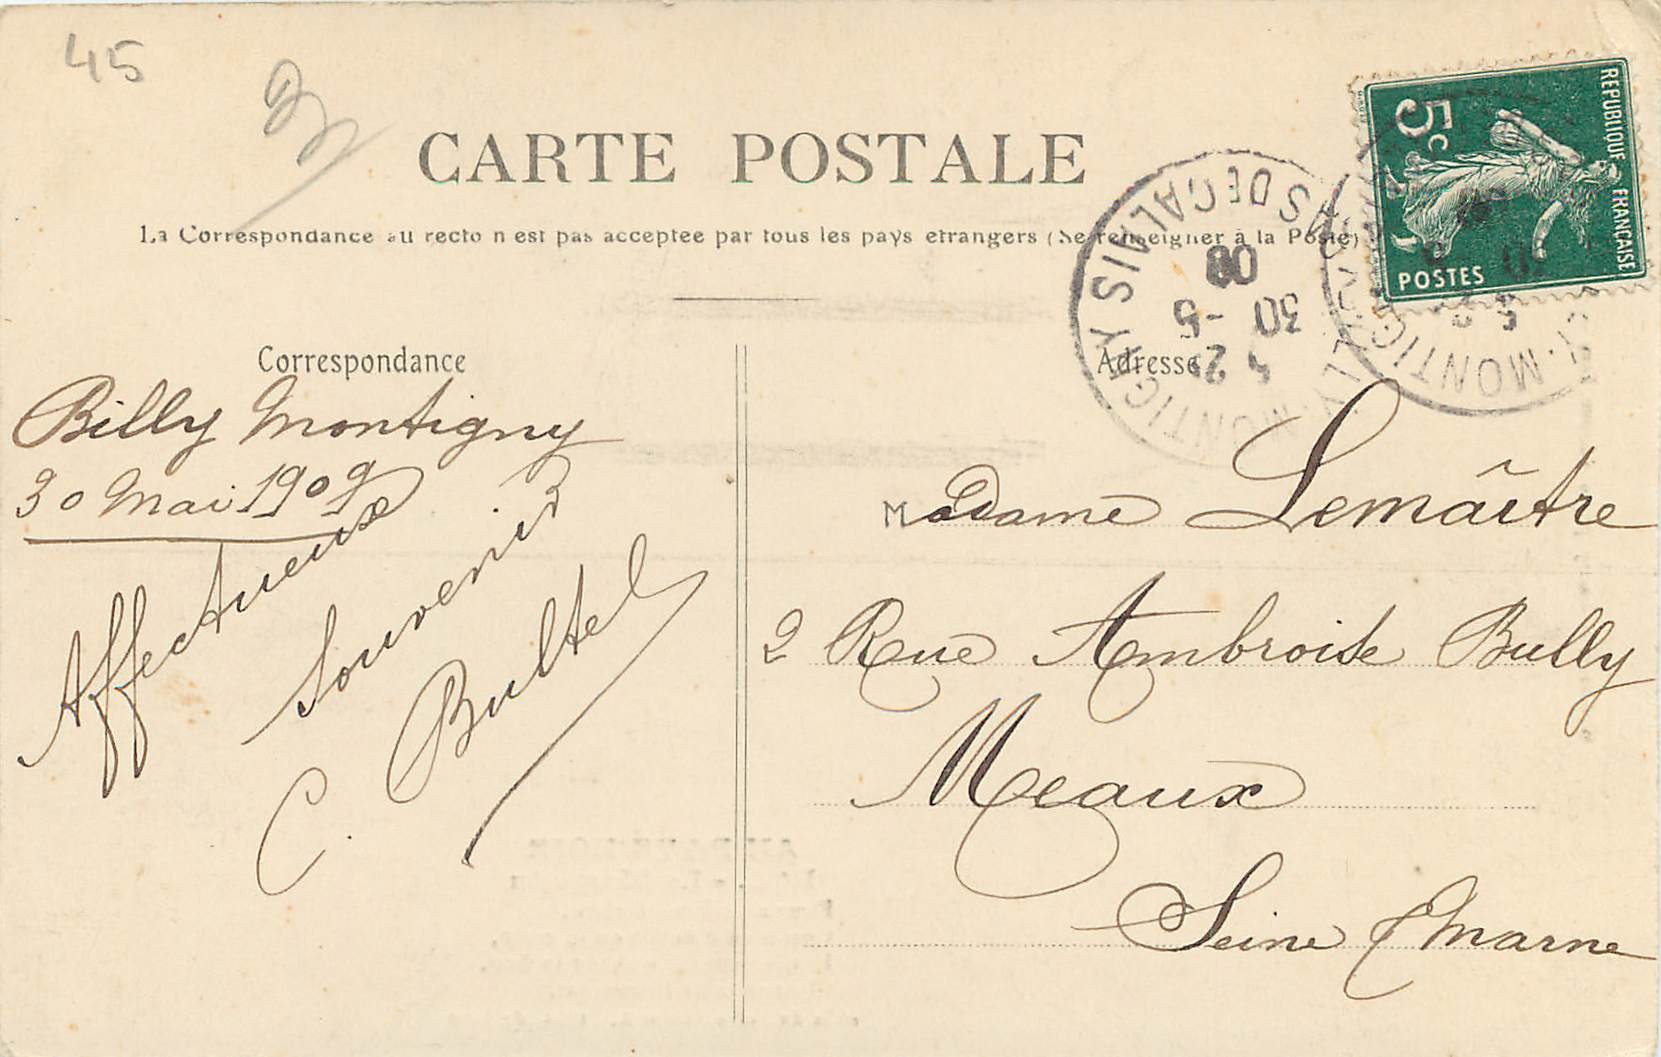 45
CARTE POSTALE
La Correspondance au recto n'est pas acceptée par tous les pays étrangers (Se renseigner à la Poste)
REPUBLIQUE FRANÇAISE
5c
POSTES
MONTIGNY PAS DE CALAIS
30 -5
09
Correspondance
Adresse
Billy Montigny
30 Mai 1909
Affectueux
Souvenirs
C. Bultel
Madame Lemaître
2 Rue Ambroise Bully
Meaux
Seine & Marne